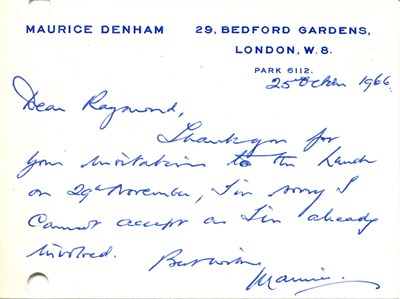 MAURICE DENHAM
29, BEDFORD GARDENS,
LONDON, W.8.
PARK 6112.
25th October 1966
Dear Raymond,
Thank you for
your invitation to the Lunch
on 29th November, I'm sorry I
cannot accept as I'm already
involved.
Best wishes
Maurice.